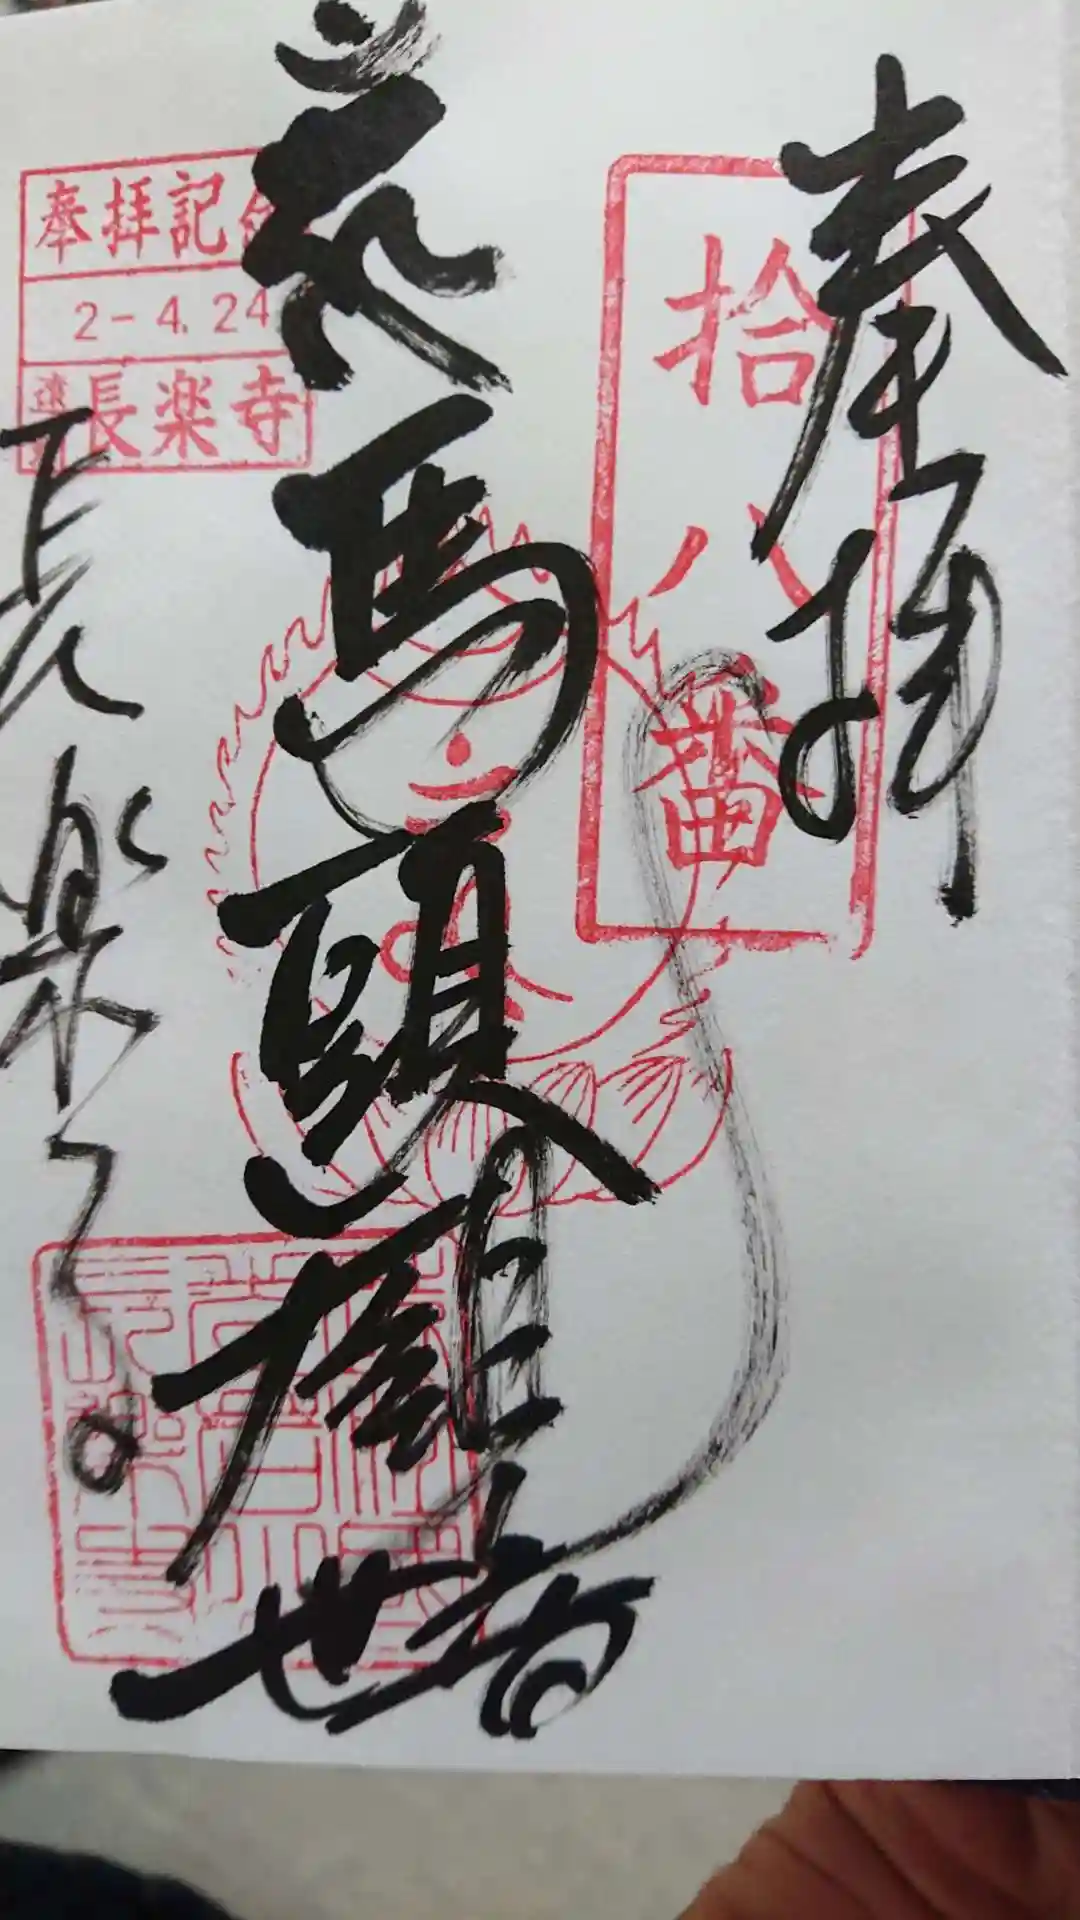 奉拝
拾八番
馬頭観世音
奉拝記
2-4.24
長楽寺
長楽寺